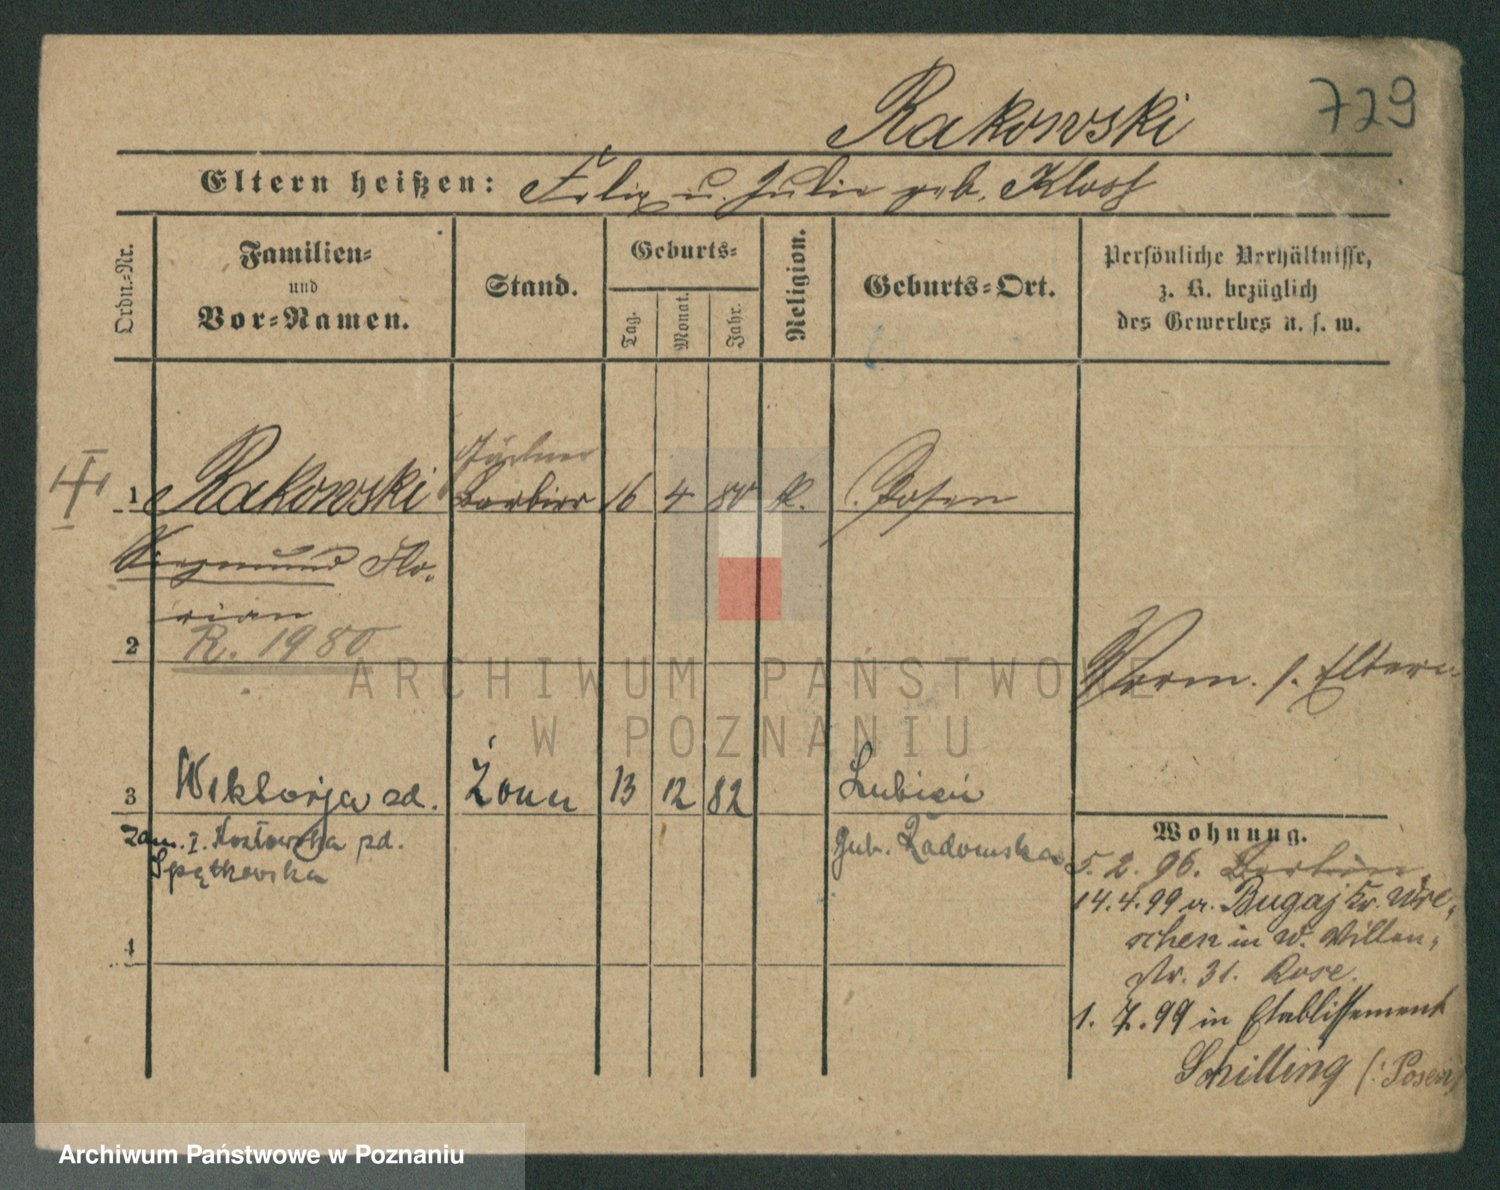 729
Rakowski
Eltern heißen: Felix u. Julie geb. Kloss
Ordn.-Nr.
Familien-
und
Vor-Namen.
Stand.
Geburts-
Tag.
Monat.
Jahr.
Religion.
Geburts-Ort.
Persönliche Verhältnisse,
z. B. bezüglich
des Gewerbes u. s. w.
1 Rakowski Barbier 16 4 80 k. Posen
Siegmund Flo-
rian
2 R. 1980
Vorm. s. Eltern
3 Wiktorja zd. Żona 13 12 82 Lubień
zam. I. Kozłowska zd.
Spętkowska
gub. Radomska
4
Wohnung.
5. 2. 96. Berlin.
14. 4. 99 a. Bugaj Kr. Wre-
schen in W. Villen-
str. 31. Rose.
1. 7. 99 in Etablissement
Schilling (: Posen
ARCHIWUM PAŃSTWOWE
W POZNANIU
Archiwum Państwowe w Poznaniu